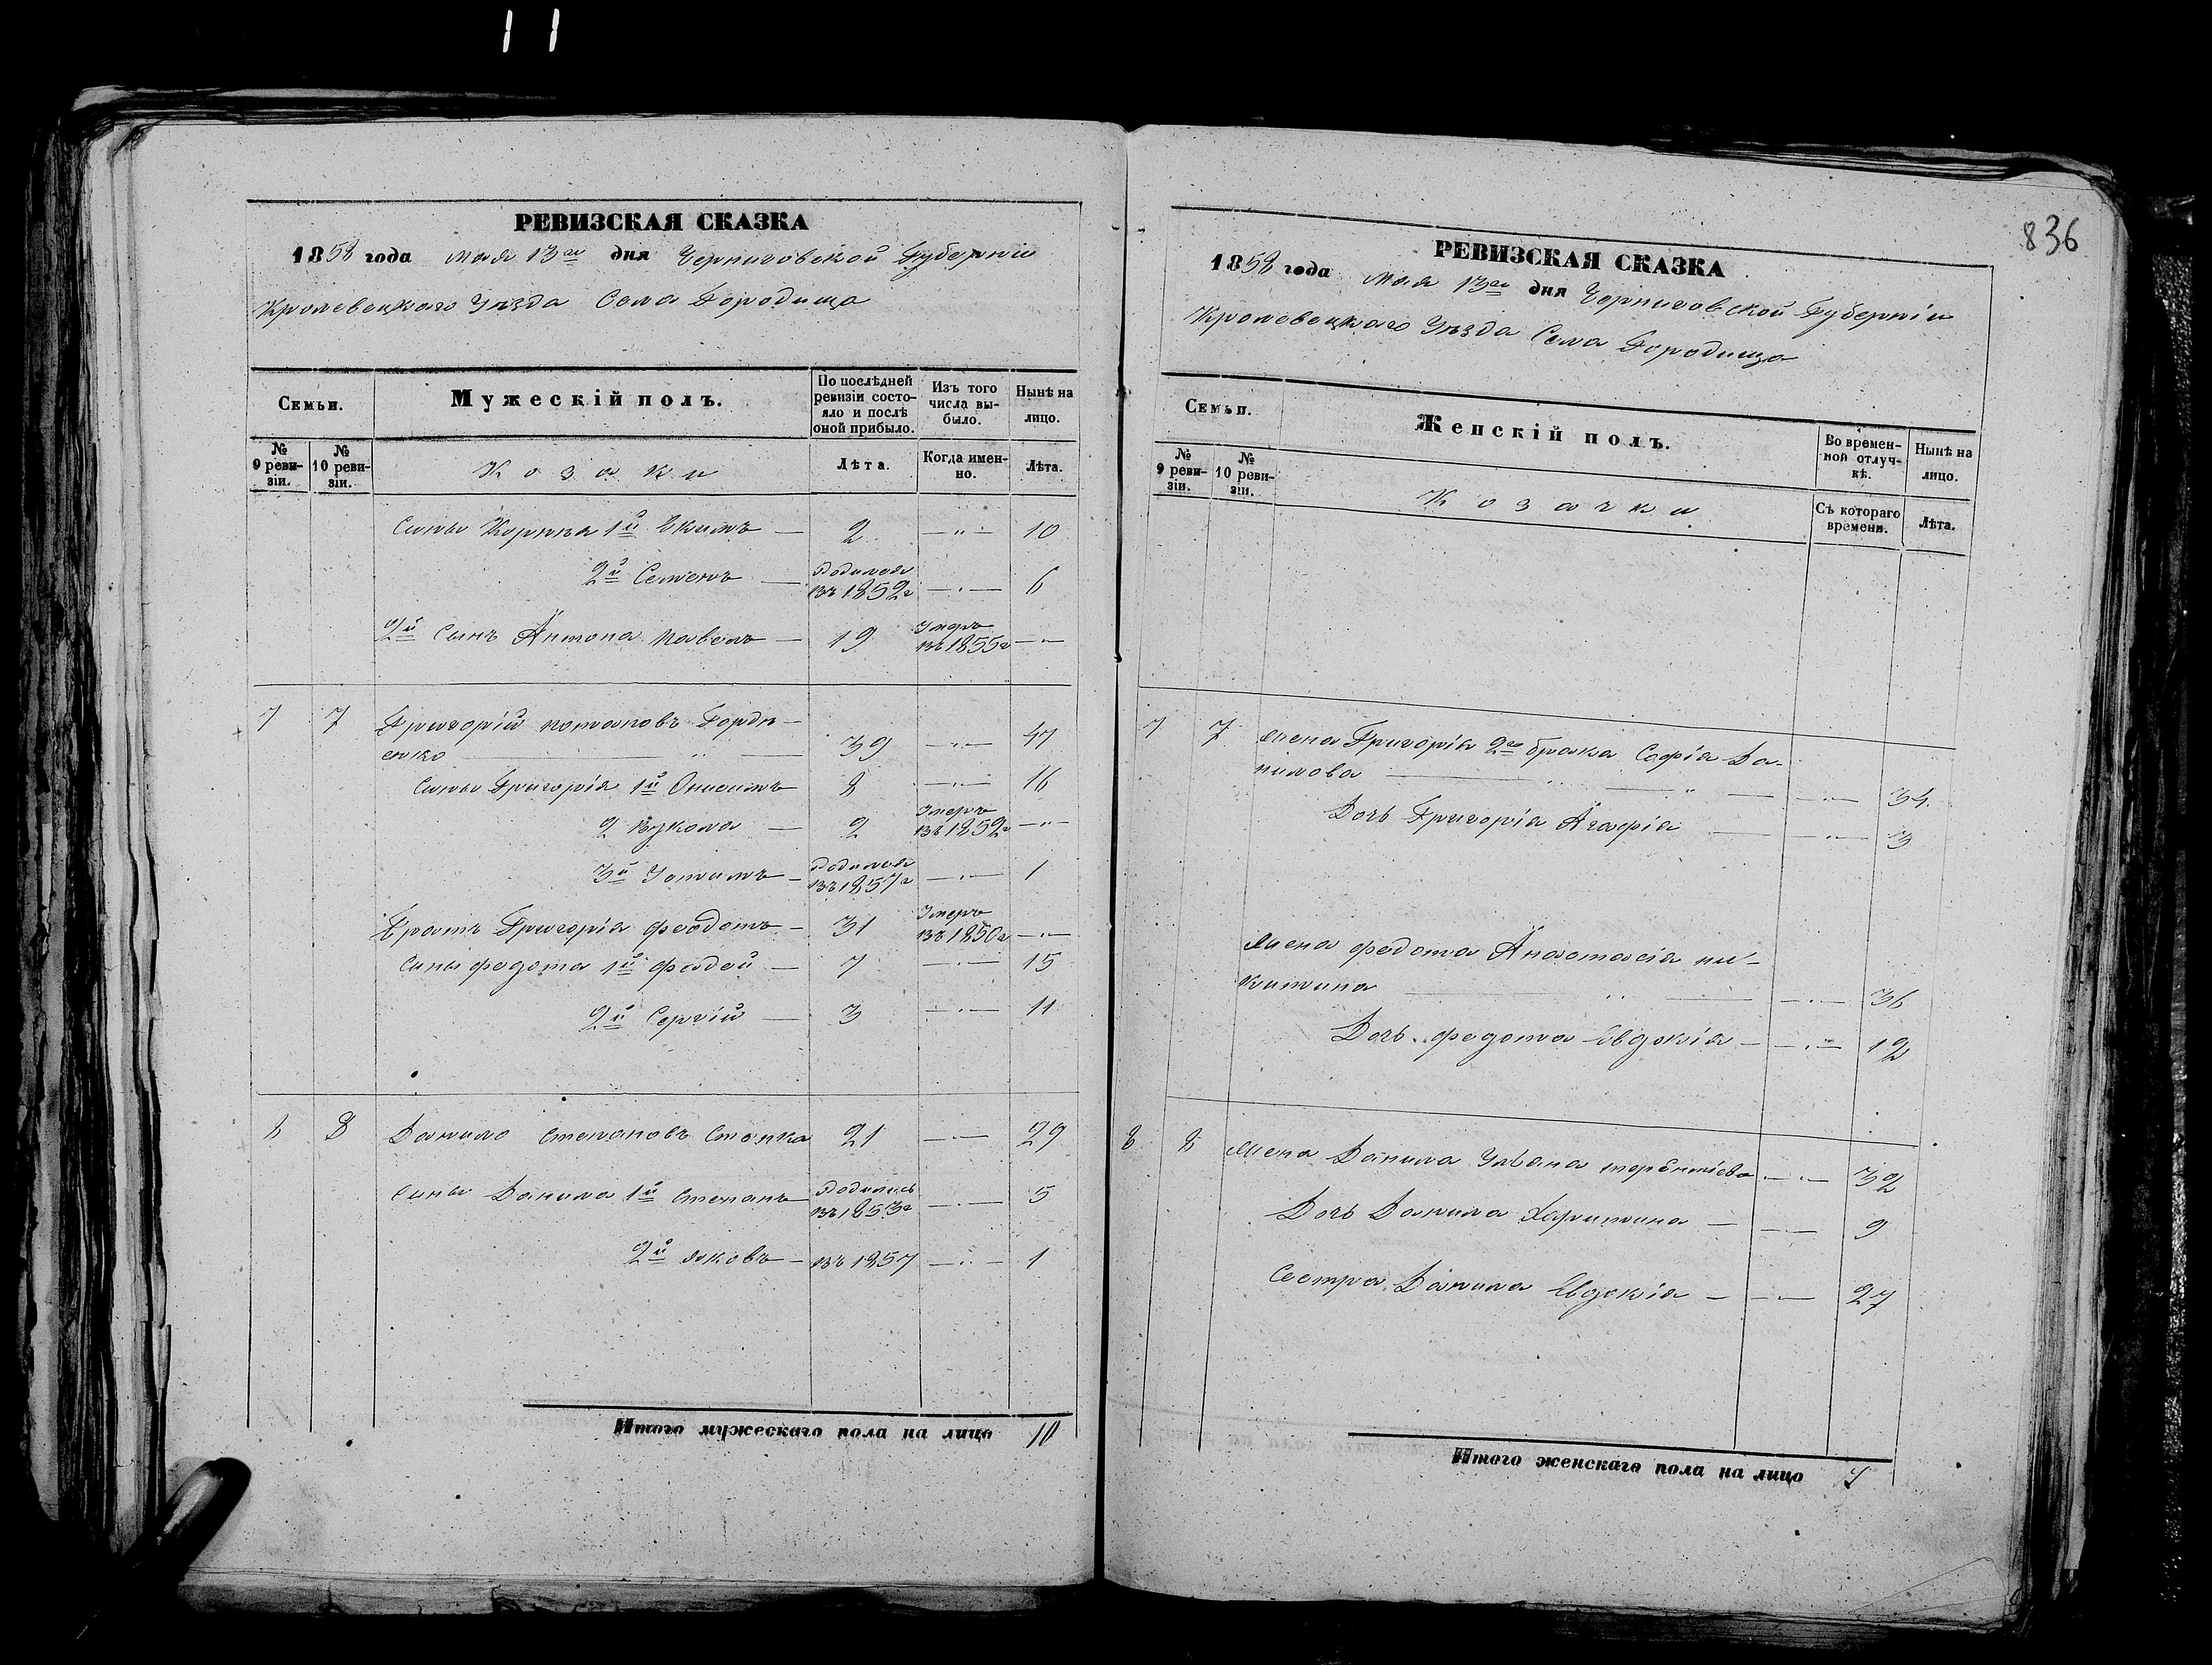 11
836
РЕВИЗСКАЯ СКАЗКА
1858 года мая 13го дня Черниговской Губерніи
Кролевецкаго Уѣзда Села Городища
Семьи.
Мужескій полъ.
По послѣдней ревизіи состояло и послѣ оной прибыло.
Изъ того числа выбыло.
Нынѣ на лицо.
№ 9 ревизіи.
№ 10 ревизіи.
Козаки
Лѣта.
Когда именно.
Лѣта.
Сыны Карпа 1й Екимъ — 2 —"— 10
2й Семенъ — Родился въ 1852г —"— 6
2й Сынъ Антона Павелъ — 19 Умеръ въ 1855г —"—
7 7 Григорій Потаповъ Горди-
енко — " — 39 —"— 47
Сыны Григорія 1й Онисимъ 8 —"— 16
2 Вукола — 2 Умеръ въ 1852г —"—
3й — Родился въ 1857г —"— 1
Братъ Григорія Феодотъ — 31 Умеръ въ 1850г —"—
Сыны Федота 1й Фадей — 7 —"— 15
2й Сергій — 3 —"— 11
8 8 Данило Степановъ 21 —"— 29
Сыны Данила 1й Степанъ Родились въ 1853г —"— 5
2й Яковъ — въ 1857 —"— 1
Итого мужескаго пола на лицо 10
РЕВИЗСКАЯ СКАЗКА
1858 года мая 13го дня Черниговской Губерніи
Кролевецкаго Уѣзда Села Городища
Семьи.
Женскій полъ.
Во временной отлучкѣ.
Нынѣ на лицо.
№ 9 ревизіи.
№ 10 ревизіи.
Козачки
Съ котораго времени.
Лѣта.
7 7 Жена Григорія 2го брака Софія Да-
нилова — " — —"— 34
Дочь Григорія Агафія — —"— 3
Жена Федота Анастасія Ни-
китина — " — —"— 36
Дочь Федота Евдокія — —"— 12
8 8 Жена Данила Уліана Терентіева —"— 32
Дочь Данила Харитина — —"— 9
Сестра Данила Евдокія — —"— 27
Итого женскаго пола на лицо 7